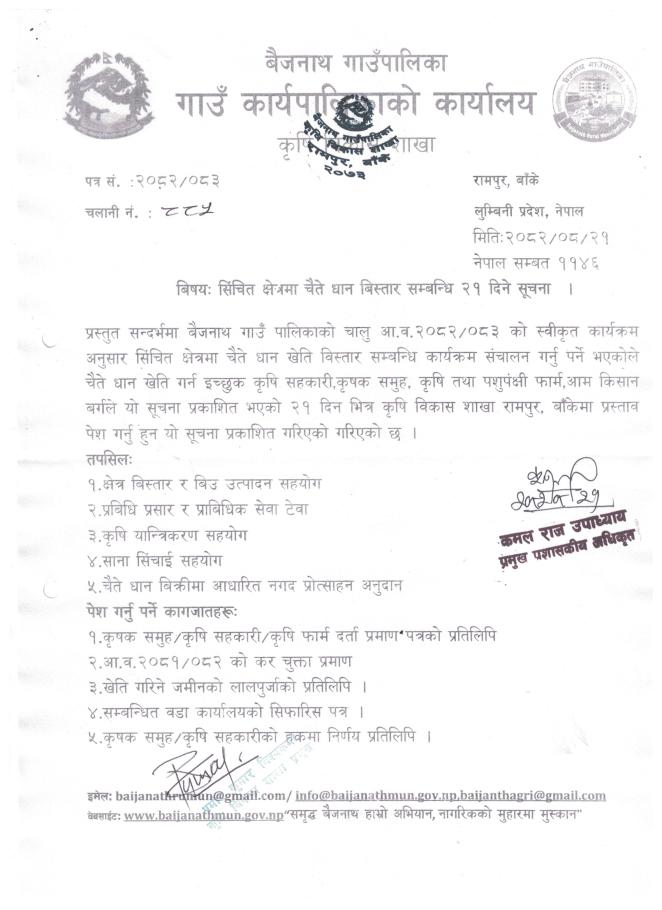 बैजनाथ गाउँपालिका
गाउँ कार्यपालिकाको कार्यालय
कृषि विकास शाखा
बैजनाथ गाउँपालिका
कृषि विकास शाखा
रामपुर, बाँके
२०७३
पत्र सं. :२०८२/०८३
रामपुर, बाँके
चलानी नं. : ८८५
लुम्बिनी प्रदेश, नेपाल
मितिः२०८२/०८/२१
नेपाल सम्बत ११४६
बिषयः सिंचित क्षेत्रमा चैते धान बिस्तार सम्बन्धि २१ दिने सूचना ।
प्रस्तुत सन्दर्भमा बैजनाथ गाउँ पालिकाको चालु आ.व.२०८२/०८३ को स्वीकृत कार्यक्रम
अनुसार सिंचित क्षेत्रमा चैते धान खेति विस्तार सम्बन्धि कार्यक्रम संचालन गर्नु पर्ने भएकोले
चैते धान खेति गर्न इच्छुक कृषि सहकारी,कृषक समुह, कृषि तथा पशुपंक्षी फार्म,आम किसान
बर्गले यो सूचना प्रकाशित भएको २१ दिन भित्र कृषि विकास शाखा रामपुर, बाँकेमा प्रस्ताव
पेश गर्नु हुन यो सूचना प्रकाशित गरिएको गरिएको छ ।
तपसिलः
१.क्षेत्र बिस्तार र बिउ उत्पादन सहयोग
२.प्रविधि प्रसार र प्राबिधिक सेवा टेवा
३.कृषि यान्त्रिकरण सहयोग
४.साना सिंचाई सहयोग
५.चैते धान बिक्रीमा आधारित नगद प्रोत्साहन अनुदान
कमल राज उपाध्याय
प्रमुख प्रशासकीय अधिकृत
पेश गर्नु पर्ने कागजातहरूः
१.कृषक समुह/कृषि सहकारी/कृषि फार्म दर्ता प्रमाण पत्रको प्रतिलिपि
२.आ.व.२०८१/०८२ को कर चुक्ता प्रमाण
३.खेति गरिने जमीनको लालपुर्जाको प्रतिलिपि ।
४.सम्बन्धित वडा कार्यालयको सिफारिस पत्र ।
५.कृषक समुह/कृषि सहकारीको हकमा निर्णय प्रतिलिपि ।
इमेल: baijanathrumun@gmail.com/ info@baijanathmun.gov.np,baijanthagri@gmail.com
वेबसाईट: www.baijanathmun.gov.np“समृद्ध बैजनाथ हाम्रो अभियान, नागरिकको मुहारमा मुस्कान”